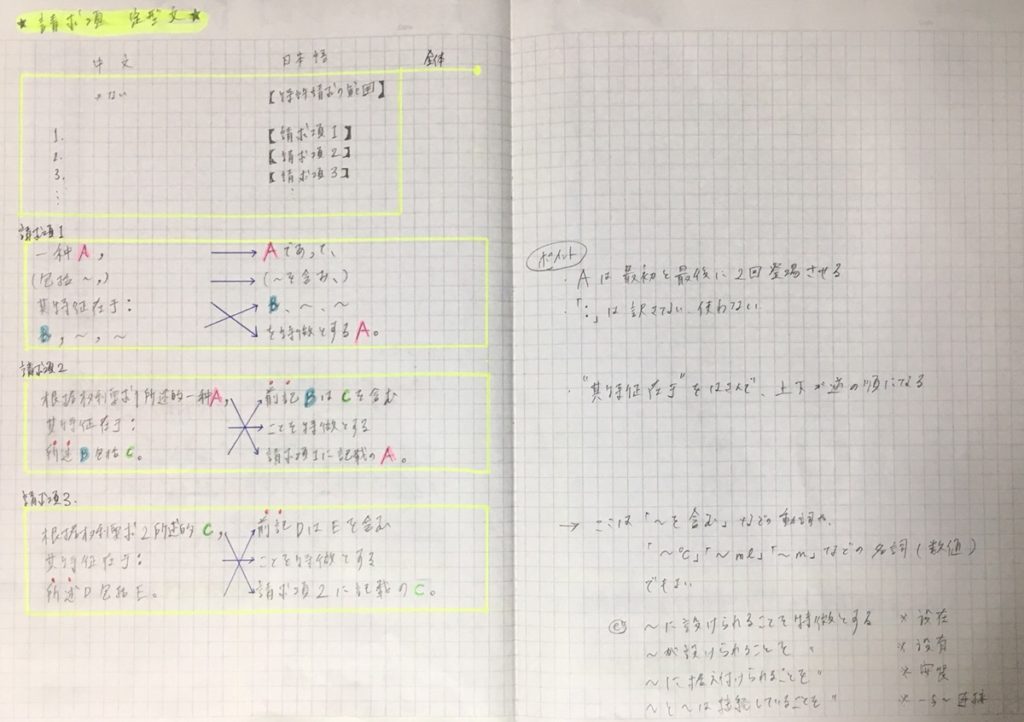 ★請求項 定型文★
中文 日本語 全体
×ない 【特許請求の範囲】
1. 【請求項1】
2. 【請求項2】
3. 【請求項3】
⋮ ⋮
請求項1
一种A, → Aであって、
(包括~,) → (~を含み、)
其特征在于: B、~、~
B,~,~ を特徴とするA。
請求項2
根据权利要求1所述的一种A, 前記BはCを含む
其特征在于: ことを特徴とする
所述B包括C。 請求項1に記載のA。
請求項3.
根据权利要求2所述的C, 前記DはEを含む
其特征在于: ことを特徴とする
所述D包括E。 請求項2に記載のC。
ポイント
・Aは最初と最後に2回登場させる
・「:」は訳さない、使わない
・"其特征在于"をはさんで、上下が逆の順になる
→ ここは「~を含む」などの動詞や、
「~℃」「~ml」「~m」などの名詞(数値)
でもよい
~に設けられることを特徴とする ※设在
~が設けられることを 〃 ※设有
~に据え付けられることを 〃 ※安装
~と~は接続していることを 〃 ※-与~连接